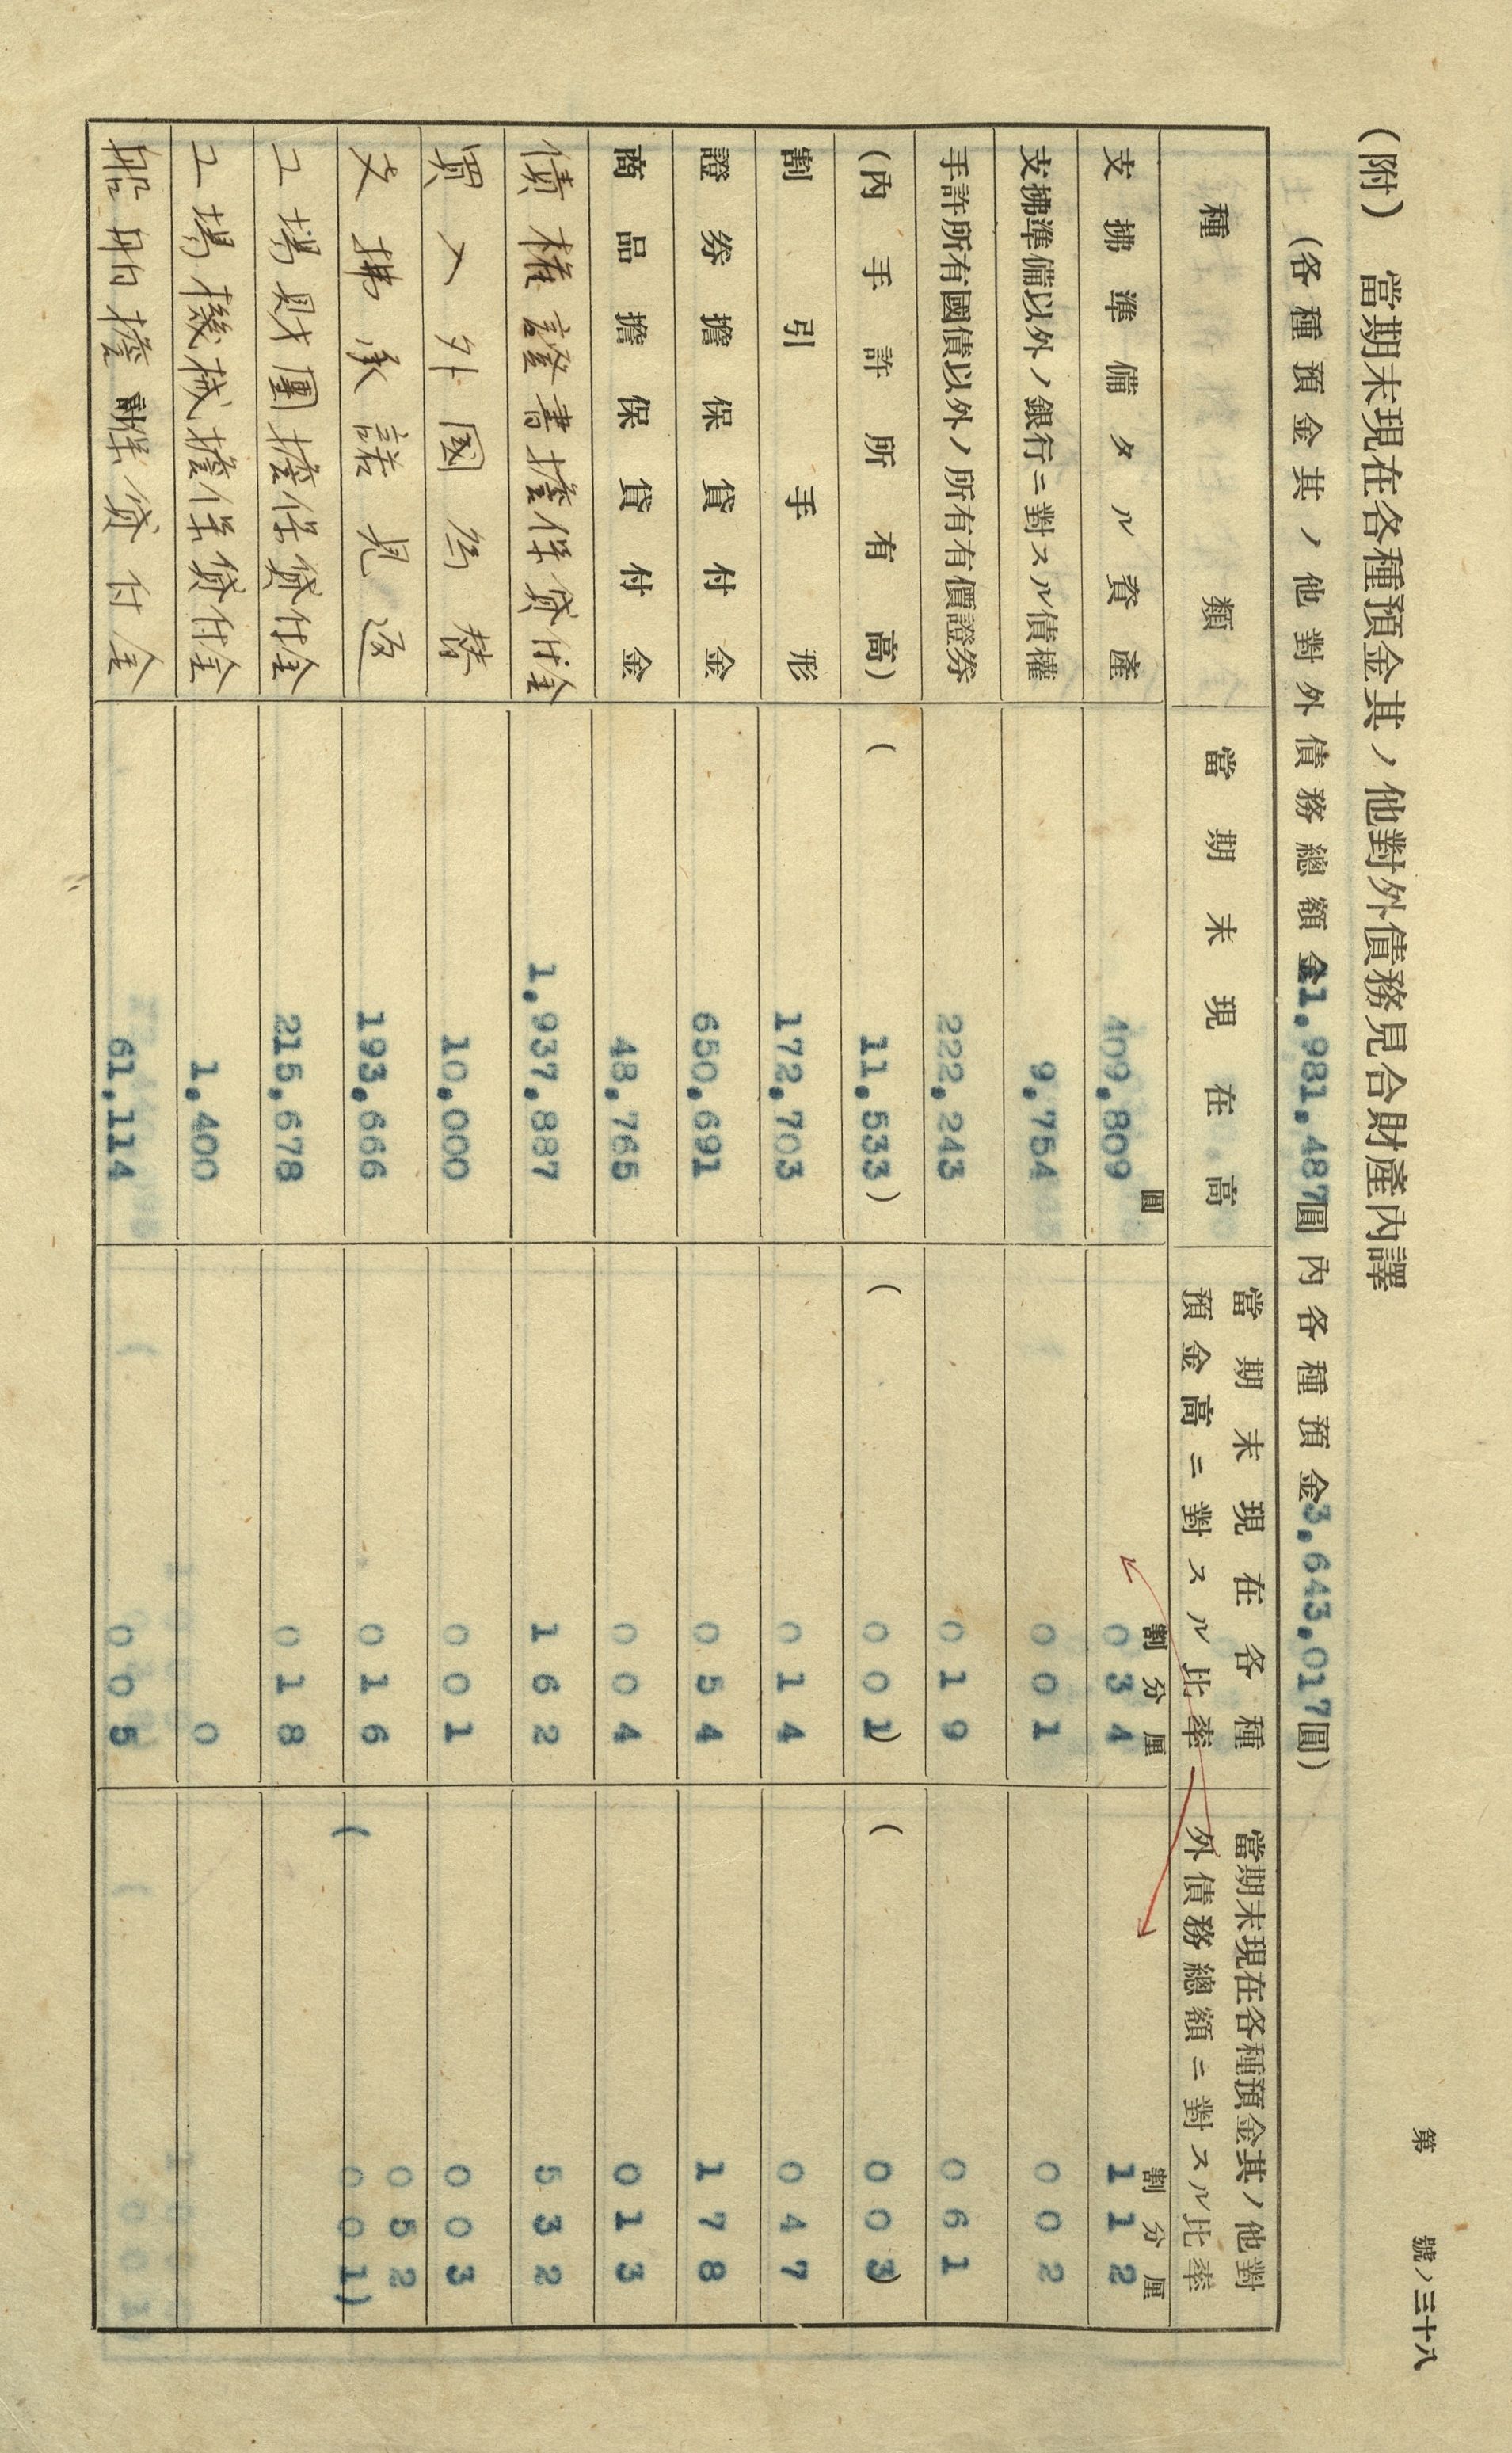 第　　號ノ三十八
(附)　當期末現在各種預金其ノ他對外債務見合財產內譯
(各種預金其ノ他對外債務總額金11,981,487圓內各種預金3,643,017圓)
種類　當期末現在高　當期末現在各種預金高ニ對スル比率　當期末現在各種預金其ノ他對外債務總額ニ對スル比率
圓　割分厘　割分厘
支拂準備タル資產　409,809　0 3 4　1 1 2
支拂準備以外ノ銀行ニ對スル債權　9,754　0 0 1　0 0 2
手許所有國債以外ノ所有有價證券　222,243　0 1 9　0 6 1
(內手許所有高)　(11,533)　(0 0 1)　(0 0 3)
割引手形　172,703　0 1 4　0 4 7
證券擔保貸付金　650,691　0 5 4　1 7 8
商品擔保貸付金　48,765　0 0 4　0 1 3
債權證書擔保貸付金　1,937,887　1 6 2　5 3 2
買入外國為替　10,000　0 0 1　0 0 3
支拂承諾見返　193,666　0 1 6　0 5 2
(0 0 1)
工場財團擔保貸付金　215,678　0 1 8
工場機械擔保貸付金　1,400　0
船舶擔保貸付金　61,114　0 0 5